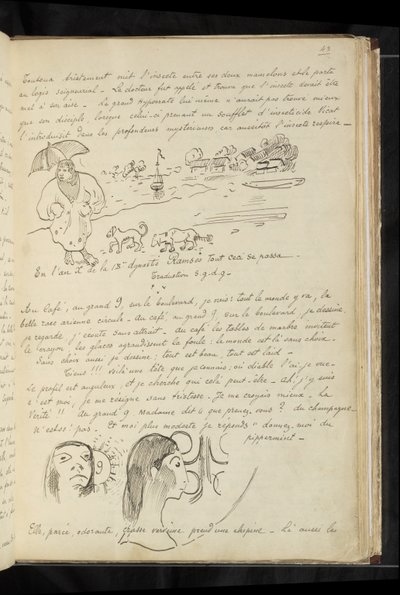 43
Toutoua briatement mit l'insecte entre ses deux mamelons et le porta
au logis seigneurial. Le docteur fut appelé et trouva que l'insecte devait être
mal à son aise. Le grand hypocrate lui même n'aurait pas trouvé mieux
que son disciple, lorsque celui-ci prenant un soufflet d'insecticide Vicat
l'introduisit dans les profondeurs mystérieuses car aussitôt l'insecte respira —
En l'an X de la 18me dynastie Ramsès tout ceci se passa. —
Traduction s.g.d.g. —
Au Café, au grand 9, sur le boulevard, je vais: tout le monde y va, la
belle race arienne circule. Au café, au grand 9, sur le boulevard, je dessine,
je regarde, j'écoute sans attrait. Au café les tables de marbre invitent
le crayon; les glaces agrandissent la foule: le monde est là sans choix.
Sans choix aussi je dessine; tout est beau, tout est laid —
Tiens!!! voilà une tête que je connais; où diable l'ai je vue—
Le profil est anguleux, et je cherche qui cela peut-être. Ah! j'y suis
c'est moi, je me résigne sans tristesse. Je me croyais mieux. La
Vérité!! Au grand 9 Madame dit à que prenez vous? du champagne
N'est-ce pas. Et moi plus modeste je réponds — donnez moi du
pippermint —
Elle, parée, odorante, grasse verveine prend une — Là aussi les